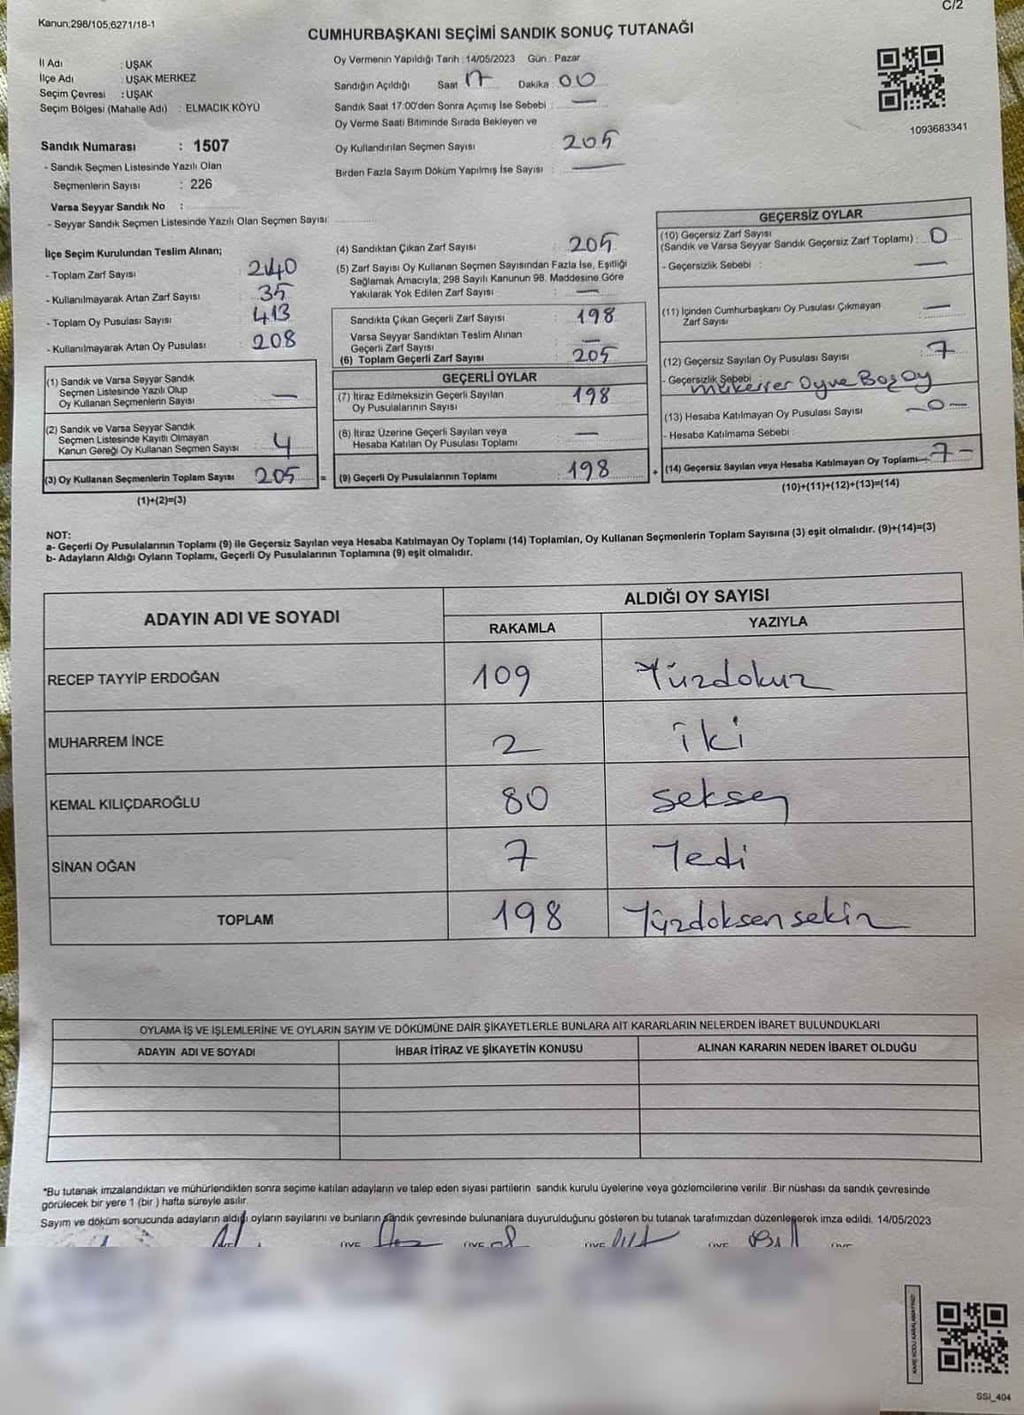 C/2
Kanun;298/105;6271/18-1
CUMHURBAŞKANI SEÇİMİ SANDIK SONUÇ TUTANAĞI
İl Adı : UŞAK
İlçe Adı : UŞAK MERKEZ
Seçim Çevresi : UŞAK
Seçim Bölgesi (Mahalle Adı) : ELMACIK KÖYÜ
Sandık Numarası : 1507
- Sandık Seçmen Listesinde Yazılı Olan
Seçmenlerin Sayısı : 226
Varsa Seyyar Sandık No :
- Seyyar Sandık Seçmen Listesinde Yazılı Olan Seçmen Sayısı
Oy Vermenin Yapıldığı Tarih : 14/05/2023 Gün : Pazar
Sandığın Açıldığı Saat 17 Dakika 00
Sandık Saat 17:00'den Sonra Açmış İse Sebebi : —
Oy Verme Saati Bitiminde Sırada Bekleyen ve
Oy Kullandırılan Seçmen Sayısı 205
Birden Fazla Sayım Döküm Yapılmış İse Sayısı : —
1093683341
İlçe Seçim Kurulundan Teslim Alınan;
- Toplam Zarf Sayısı 240
- Kullanılmayarak Artan Zarf Sayısı 35
- Toplam Oy Pusulası Sayısı 413
- Kullanılmayarak Artan Oy Pusulası 208
(1) Sandık ve Varsa Seyyar Sandık
Seçmen Listesinde Yazılı Olup
Oy Kullanan Seçmenlerin Sayısı —
(2) Sandık ve Varsa Seyyar Sandık
Seçmen Listesinde Kayıtlı Olmayan
Kanun Gereği Oy Kullanan Seçmen Sayısı 4
(3) Oy Kullanan Seçmenlerin Toplam Sayısı 205 =
(1)+(2)=(3)
(4) Sandıktan Çıkan Zarf Sayısı 205
(5) Zarf Sayısı Oy Kullanan Seçmen Sayısından Fazla İse, Eşitliği
Sağlamak Amacıyla, 298 Sayılı Kanunun 98. Maddesine Göre
Yakılarak Yok Edilen Zarf Sayısı : —
Sandıkta Çıkan Geçerli Zarf Sayısı 198
Varsa Seyyar Sandıktan Teslim Alınan
Geçerli Zarf Sayısı —
(6) Toplam Geçerli Zarf Sayısı 205
GEÇERLİ OYLAR
(7) İtiraz Edilmeksizin Geçerli Sayılan
Oy Pusulalarının Sayısı 198
(8) İtiraz Üzerine Geçerli Sayılan veya
Hesaba Katılan Oy Pusulası Toplamı —
(9) Geçerli Oy Pusulalarının Toplamı 198 +
GEÇERSİZ OYLAR
(10) Geçersiz Zarf Sayısı
(Sandık ve Varsa Seyyar Sandık Geçersiz Zarf Toplamı) : 0
- Geçersizlik Sebebi : —
(11) İçinden Cumhurbaşkanı Oy Pusulası Çıkmayan
Zarf Sayısı —
(12) Geçersiz Sayılan Oy Pusulası Sayısı : 7
- Geçersizlik Sebebi mükerrer Oy ve Boş Oy
(13) Hesaba Katılmayan Oy Pusulası Sayısı —0—
- Hesaba Katılmama Sebebi :
(14) Geçersiz Sayılan veya Hesaba Katılmayan Oy Toplamı 7 —
(10)+(11)+(12)+(13)=(14)
NOT:
a- Geçerli Oy Pusulalarının Toplamı (9) ile Geçersiz Sayılan veya Hesaba Katılmayan Oy Toplamı (14) Toplamları, Oy Kullanan Seçmenlerin Toplam Sayısına (3) eşit olmalıdır. (9)+(14)=(3)
b- Adayların Aldığı Oyların Toplamı, Geçerli Oy Pusulalarının Toplamına (9) eşit olmalıdır.
ADAYIN ADI VE SOYADI ALDIĞI OY SAYISI
RAKAMLA YAZIYLA
RECEP TAYYİP ERDOĞAN 109 Yüzdokuz
MUHARREM İNCE 2 iki
KEMAL KILIÇDAROĞLU 80 Seksen
SİNAN OĞAN 7 Yedi
TOPLAM 198 Yüzdoksensekiz
OYLAMA İŞ VE İŞLEMLERİNE VE OYLARIN SAYIM VE DÖKÜMÜNE DAİR ŞİKAYETLERLE BUNLARA AİT KARARLARIN NELERDEN İBARET BULUNDUKLARI
ADAYIN ADI VE SOYADI İHBAR İTİRAZ VE ŞİKAYETİN KONUSU ALINAN KARARIN NEDEN İBARET OLDUĞU
*Bu tutanak imzalandıktan ve mühürlendikten sonra seçime katılan adayların ve talep eden siyasi partilerin sandık kurulu üyelerine veya gözlemcilerine verilir. Bir nüshası da sandık çevresinde
görülecek bir yere 1 (bir) hafta süreyle asılır.
Sayım ve döküm sonucunda adayların aldığı oyların sayılarını ve bunların sandık çevresinde bulunanlara duyurulduğunu gösteren bu tutanak tarafımızdan düzenlenerek imza edildi. 14/05/2023
SSI_404